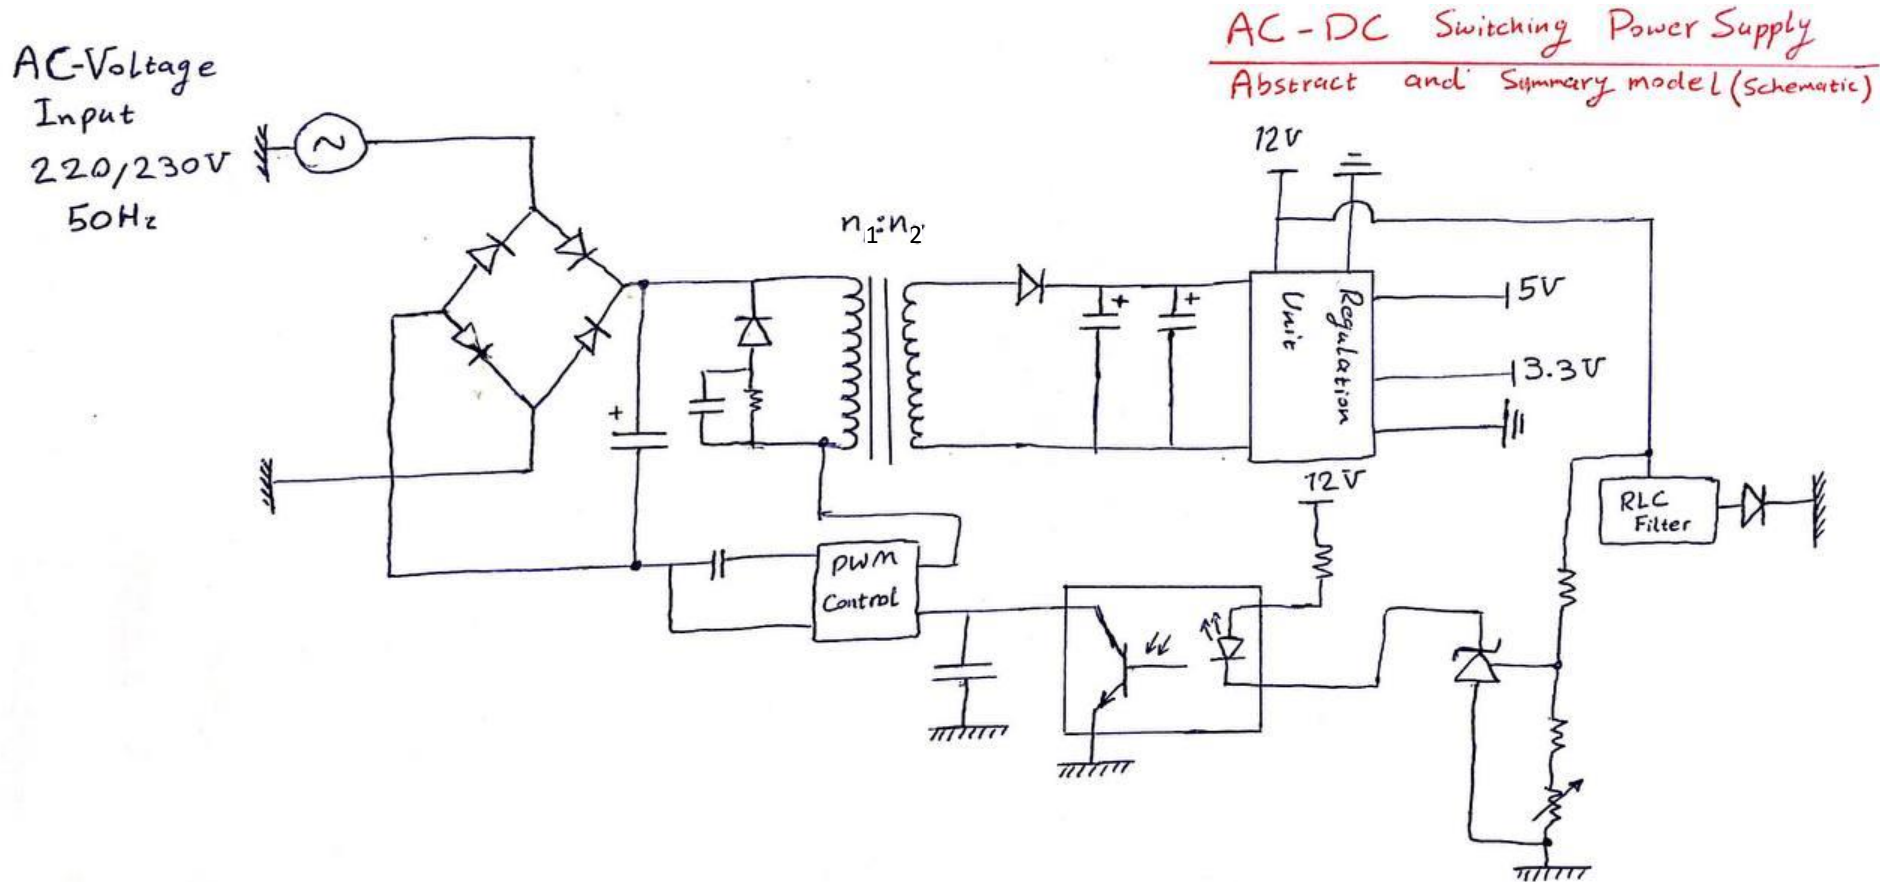 AC-DC Switching Power Supply
Abstract and Summary model (Schematic)
AC-Voltage
Input
220/230V
50Hz
n1:n2
12V
Regulation
Unit
5V
3.3V
12V
RLC
Filter
PWM
Control
+
+
+